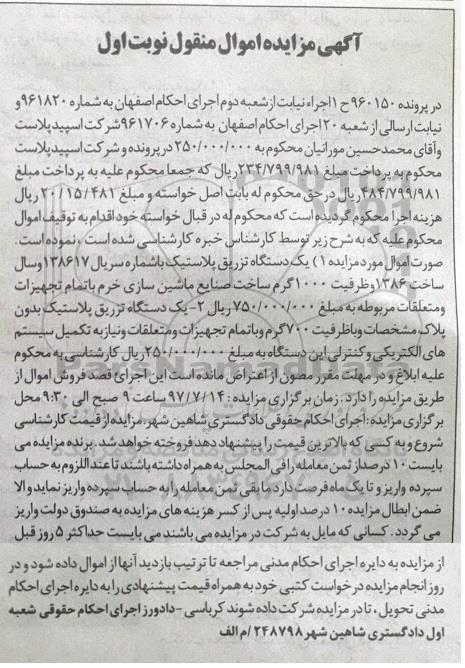 آگهی مزایده اموال منقول نوبت اول
در پرونده ۹۶۰۱۵۰ ح ۱ اجراء نیابت از شعبه دوم اجرای احکام اصفهان به شماره ۹۶۱۸۲۰ و
نیابت ارسالی از شعبه ۲۰ اجرای احکام اصفهان به شماره ۹۶۱۷۰۶ شرکت اسپید پلاست
وآقای محمدحسین مورانیان محکوم به ۲۵۰/۰۰۰/۰۰۰ در پرونده و شرکت اسپید پلاست
محکوم به پرداخت مبلغ ۲۳۴/۷۹۹/۹۸۱ ریال که جمعا محکوم علیه به پرداخت مبلغ
۴۸۴/۷۹۹/۹۸۱ ریال در حق محکوم له بابت اصل خواسته و مبلغ ۲۰/۱۵/۴۸۱ ریال
هزینه اجرا محکوم گردیده است که محکوم له در قبال خواسته خود اقدام به توقیف اموال
محکوم علیه که به شرح زیر توسط کارشناس خبره کارشناسی شده است ، نموده است.
صورت اموال مورد مزایده ۱) یک دستگاه تزریق پلاستیک باشماره سریال ۱۳۸۶۱۷ وسال
ساخت ۱۳۸۶ وظرفیت ۱۰۰۰ گرم ساخت صنایع ماشین سازی خرم باتمام تجهیزات
ومتعلقات مربوطه به مبلغ ۷۵۰/۰۰۰/۰۰۰ ریال ۲- یک دستگاه تزریق پلاستیک بدون
پلاک مشخصات وباظرفیت ۷۰۰ گرم وباتمام تجهیزات ومتعلقات ونیاز به تکمیل سیستم
های الکتریکی و کنترلی این دستگاه به مبلغ ۲۵۰/۰۰۰/۰۰۰ ریال کارشناسی به محکوم
علیه ابلاغ و در مهلت مقرر مصون از اعتراض مانده است این اجرای قصد فروش اموال از
طریق مزایده را دارد. زمان برگزاری مزایده: ۹۷/۷/۱۴ ساعت ۹ صبح الی ۹:۳۰ محل
برگزاری مزایده: اجرای احکام حقوقی دادگستری شاهین شهر، مزایده از قیمت کارشناسی
شروع و به کسی که بالاترین قیمت را پیشنهاد دهد فروخته خواهد شد. برنده مزایده می
بایست ۱۰ درصد از ثمن معامله را فی المجلس به همراه داشته باشند تا عند اللزوم به حساب
سپرده واریز و تا یک ماه فرصت دارد مابقی ثمن معامله را به حساب سپرده واریز نماید والا
ضمن ابطال مزایده ۱۰ درصد اولیه پس از کسر هزینه های مزایده به صندوق دولت واریز
می گردد. کسانی که مایل به شرکت در مزایده می باشند می بایست حداکثر ۵ روز قبل
از مزایده به دایره اجرای احکام مدنی مراجعه تا ترتیب بازدید آنها از اموال داده شود و در
روز انجام مزایده درخواست کتبی خود به همراه قیمت پیشنهادی را به دایره اجرای احکام
مدنی تحویل ، تا در مزایده شرکت داده شوند کرباسی – دادورز اجرای احکام حقوقی شعبه
اول دادگستری شاهین شهر ۲۴۸۷۹۸/م الف